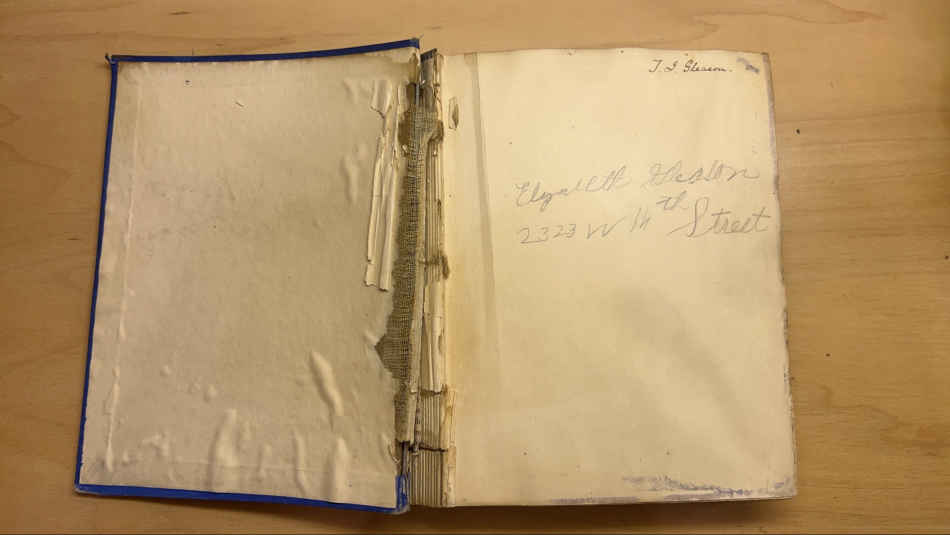 T. J. Gleason.
Elizabeth Gleason
2323 W 14th Street